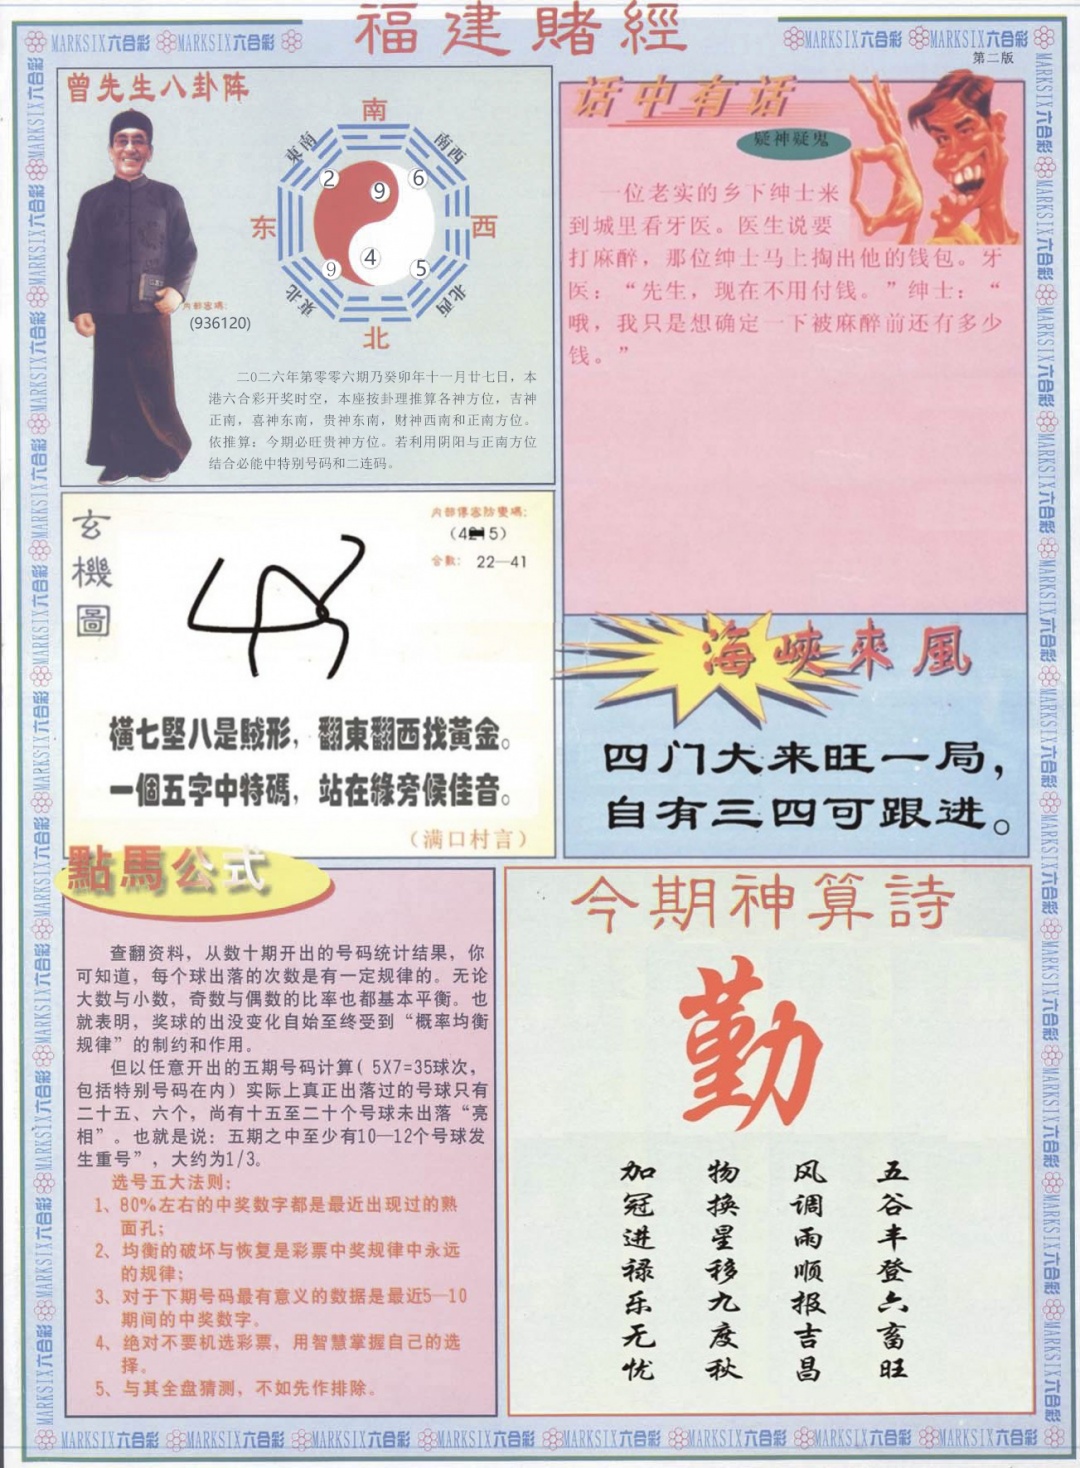 福建賭經
MARKSIX六合彩 MARKSIX六合彩 MARKSIX六合彩 MARKSIX六合彩
第二版
曾先生八卦阵
南
東南 南西
2 9 6
东 西
9 4 5
東北 北西
北
内部密碼:
(936120)
二0二六年第零零六期乃癸卯年十一月廿七日，本
港六合彩开奖时空，本座按卦理推算各神方位，吉神
正南，喜神东南，贵神东南，财神西南和正南方位。
依推算：今期必旺贵神方位。若利用阴阳与正南方位
结合必能中特别号码和二连码。
话中有话
疑神疑鬼
一位老实的乡下绅士来
到城里看牙医。医生说要
打麻醉，那位绅士马上掏出他的钱包。牙
医：“先生，现在不用付钱。”绅士：“
哦，我只是想确定一下被麻醉前还有多少
钱。”
玄機圖
内部傳密防變碼:
合數: 22—41
橫七堅八是賊形，翻東翻西找黃金。
一個五字中特碼，站在綠旁候佳音。
（满口村言）
海峽來風
四门大来旺一局，
自有三四可跟进。
點馬公式
查翻资料，从数十期开出的号码统计结果，你
可知道，每个球出落的次数是有一定规律的。无论
大数与小数，奇数与偶数的比率也都基本平衡。也
就表明，奖球的出没变化自始至终受到“概率均衡
规律”的制约和作用。
但以任意开出的五期号码计算( 5X7=35球次，
包括特别号码在内）实际上真正出落过的号球只有
二十五、六个，尚有十五至二十个号球未出落“亮
相”。也就是说：五期之中至少有10—12个号球发
生重号”，大约为1/3。
选号五大法则：
1、80%左右的中奖数字都是最近出现过的熟
面孔；
2、均衡的破坏与恢复是彩票中奖规律中永远
的规律；
3、对于下期号码最有意义的数据是最近5—10
期间的中奖数字。
4、绝对不要机选彩票，用智慧掌握自己的选
择。
5、与其全盘猜测，不如先作排除。
今期神算詩
勤
加冠进禄乐无忧
物换星移九度秋
风调雨顺报吉昌
五谷丰登六畜旺
MARKSIX六合彩 MARKSIX六合彩 MARKSIX六合彩 MARKSIX六合彩 MARKSIX六合彩 MARKSIX六合彩 MARKSIX六合彩 MARKSIX六合彩